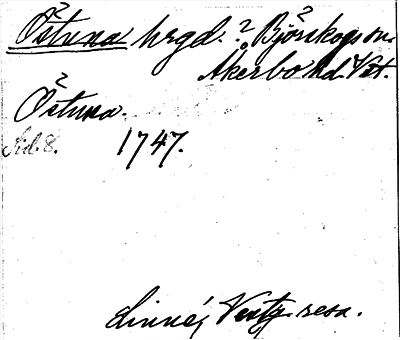 Östuna hrgd.? Björskogs sn.
Åkerbo hd. Vst.
Östuna.
Sid. 8. 1747.
Linné, Vestg. resa.